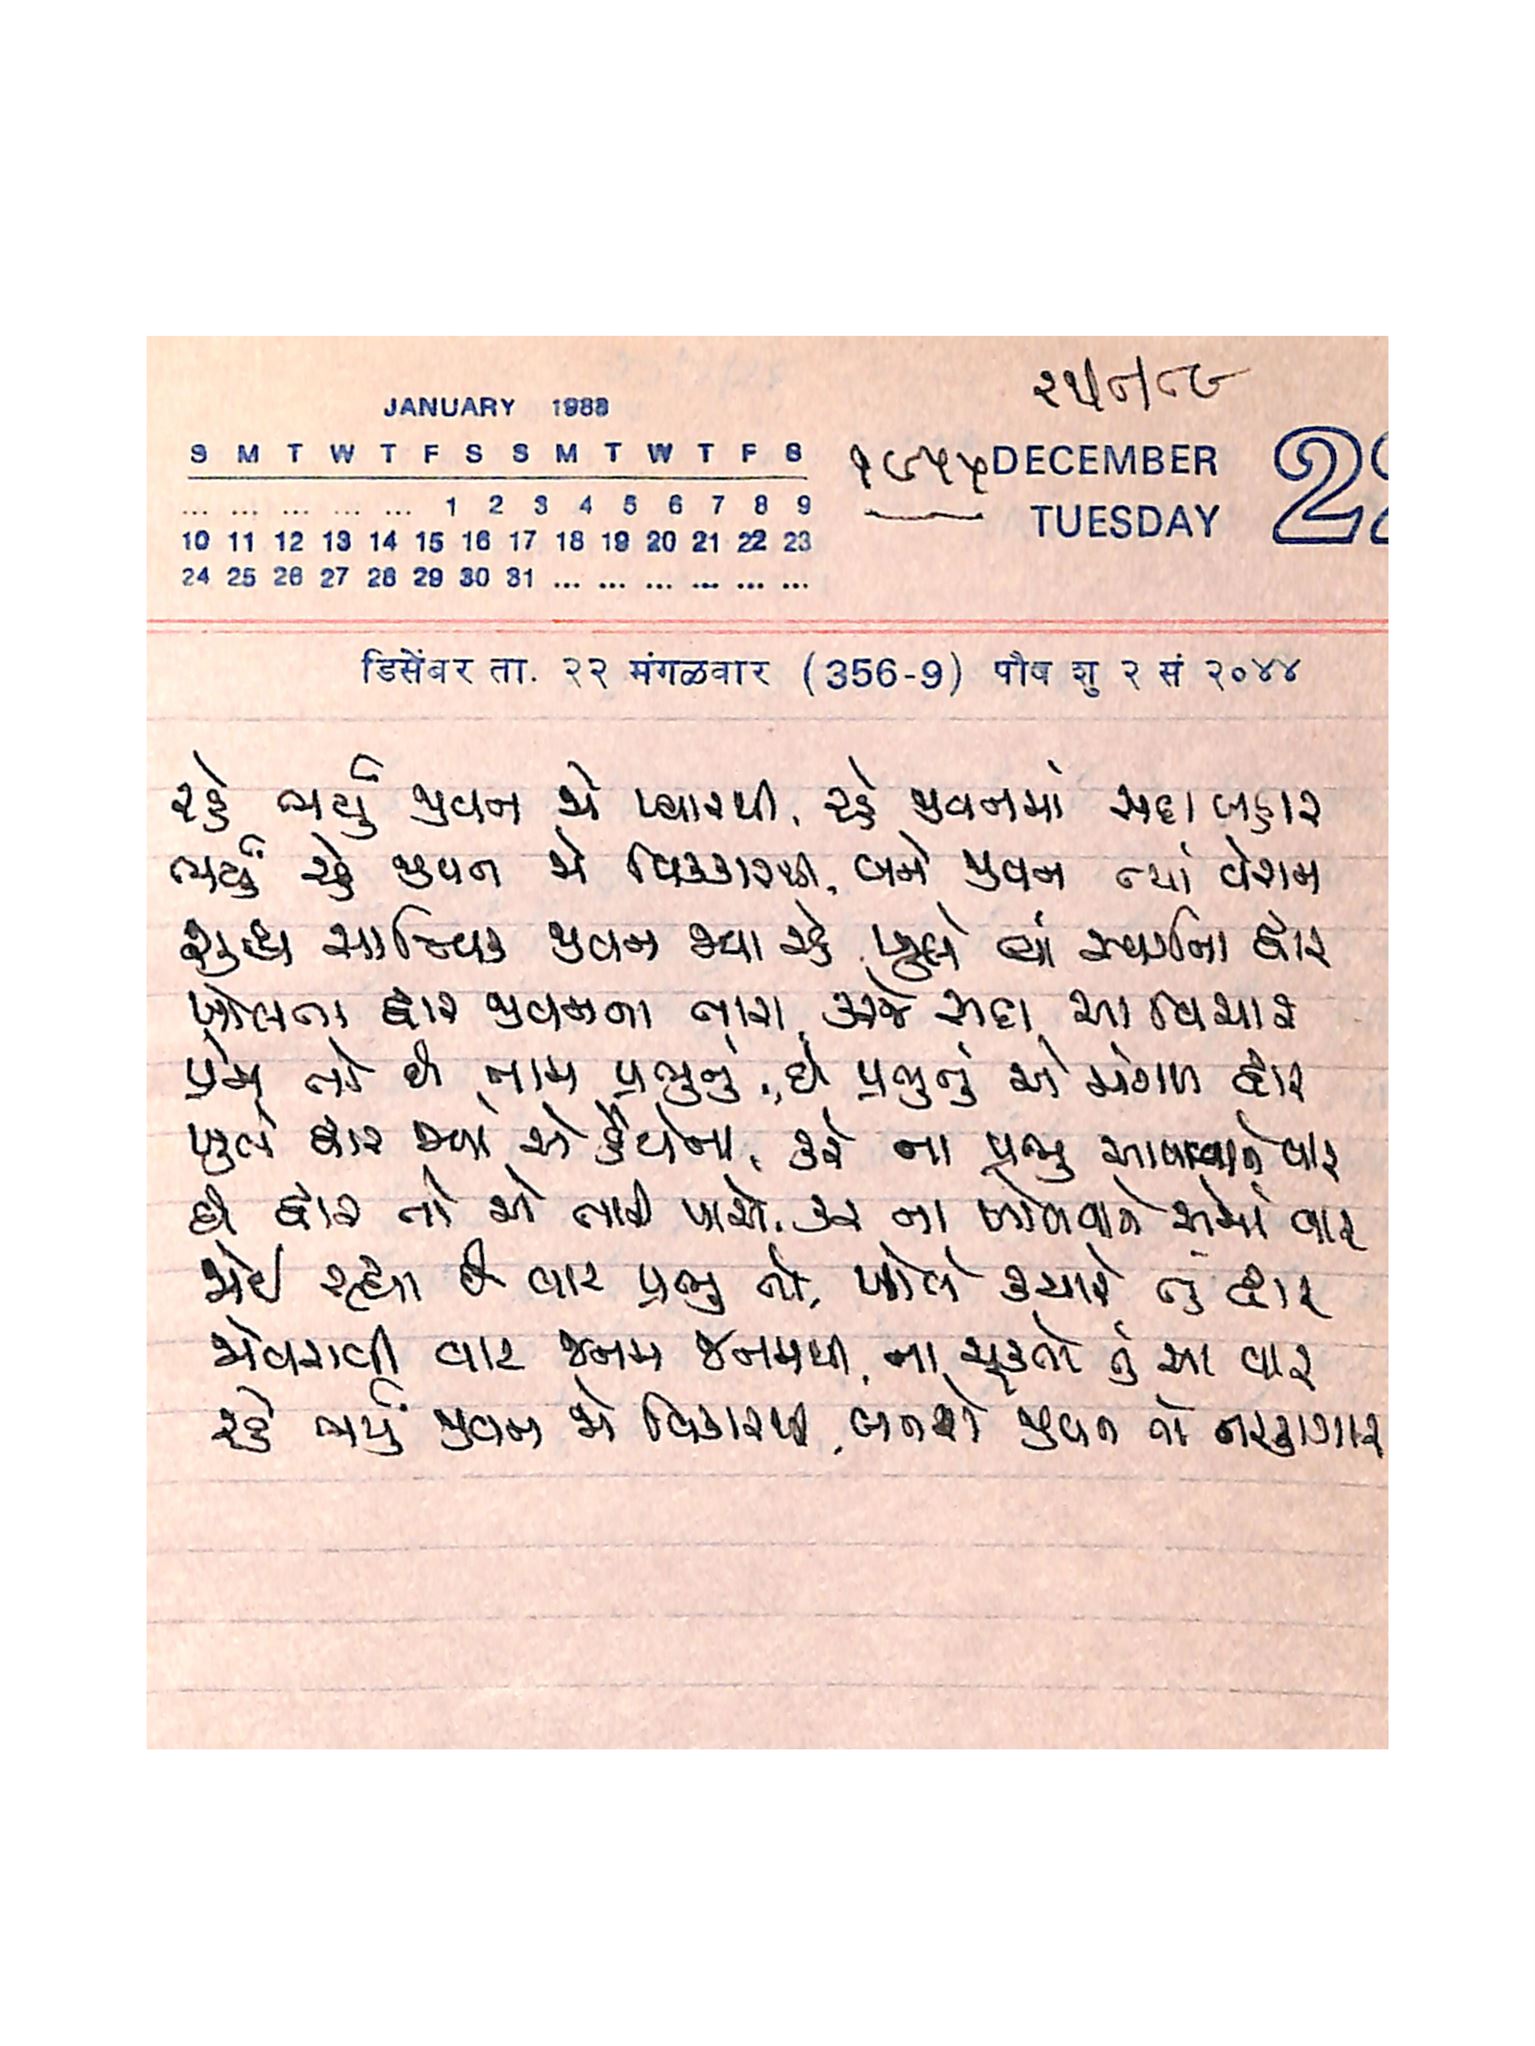 ૨૫/૮/૮૯
JANUARY 1988
S M T W T F S S M T W T F S
... ... ... ... ... 1 2 3 4 5 6 7 8 9
10 11 12 13 14 15 16 17 18 19 20 21 22 23
24 25 26 27 28 29 30 31 ... ... ... ... ... ...
૧૯૫૫
DECEMBER
TUESDAY
22
डिसेंबर ता. २२ मंगळवार (356-9) पौष शु २ सं २०४४
રહે ભર્યું જીવન જો પ્યારથી, રહે જીવનમાં સદા બહાર
ભર્યું રહે જીવન જો વિકારથી, બને જીવન ત્યાં વેરાન
શુદ્ધ સાત્ત્વિક જીવન જ્યાં રહે, ખૂલે ત્યાં સ્વર્ગના દ્વાર
ખોલતા દ્વાર જીવનના તારા, કરજે સદા આ વિચાર
પ્રેમ તો છે નામ પ્રભુનું, છે પ્રભુનું એ મંગળ દ્વાર
ખુલે દ્વાર જ્યાં એ હૈયેના, કરે ના પ્રભુ આવવાને વાર
છે દ્વાર તો એ તારી પાસે, કર ના ખોલવાને એમાં વાર
જોઈ રહ્યા છે વાર પ્રભુ તો, ખોલે ક્યારે તું દ્વાર
જોવરાવી વાર જનમ જનમથી, ના ચૂકતો તું આ વાર
રહે ભર્યું જીવન જો વિકારથી, બનશે જીવન તો નરકાગાર